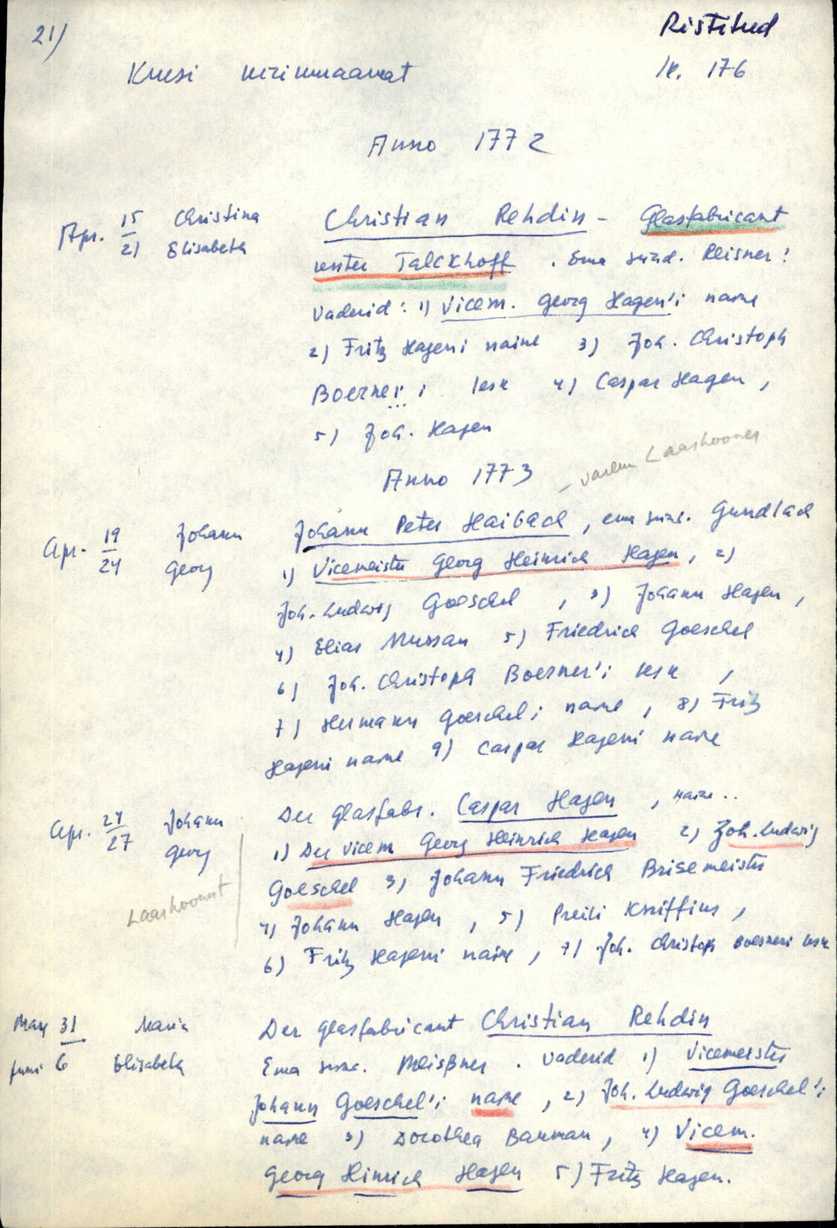 21)
Ristitud
lk. 176
Anno 1772
Apr. 15/21 Christina Elisabeth
Christian Rehdin - Glasfabricant
unter Talckhoff . Ema sünd. Reisner!
Vaderid: 1) Vicem. Georg Hagen'i naine
2) Fritz Hageni naine 3) Joh. Christoph
Boerneri lesk 4) Caspar Hagen,
5) Joh. Hagen
Anno 1773
- varem Laashoones
Apr. 19/24 Johann Georg
Johann Peter Haibach, ema sünd. Gundlach
1) Vicemeister Georg Heinrich Hagen, 2)
Joh. Ludwig Goeschel, 3) Johann Hagen,
4) Elias Mussan 5) Friedrich Goeschel
6) Joh. Christoph Boerner'i lesk,
7) Hermann Goescheli naine, 8) Fritz
Hageni naine 9) Caspar Hageni naine
Apr. 24/27 Johann Georg
Laashoonest
Der Glasfabr. Caspar Hagen, naine..
1) Der Vicem Georg Heinrich Hagen 2) Joh. Ludwig
Goeschel 3) Johann Friedrich Brisemeister
4) Johann Hagen, 5) Preili Kniffius,
6) Fritz Hageni naine, 7) Joh. Christoph Boerneri lesk
May 31 Juni 6 Maria Elisabeth
Der Glasfabricant Christian Rehdin
Ema sünd. Meißner. Vaderid 1) Vicemeister
Johann Goeschel'i naine, 2) Joh. Ludwig Goeschel'i
naine 3) Dorothea Bauman, 4) Vicem.
Georg Hinrich Hagen 5) Fritz Hagen.